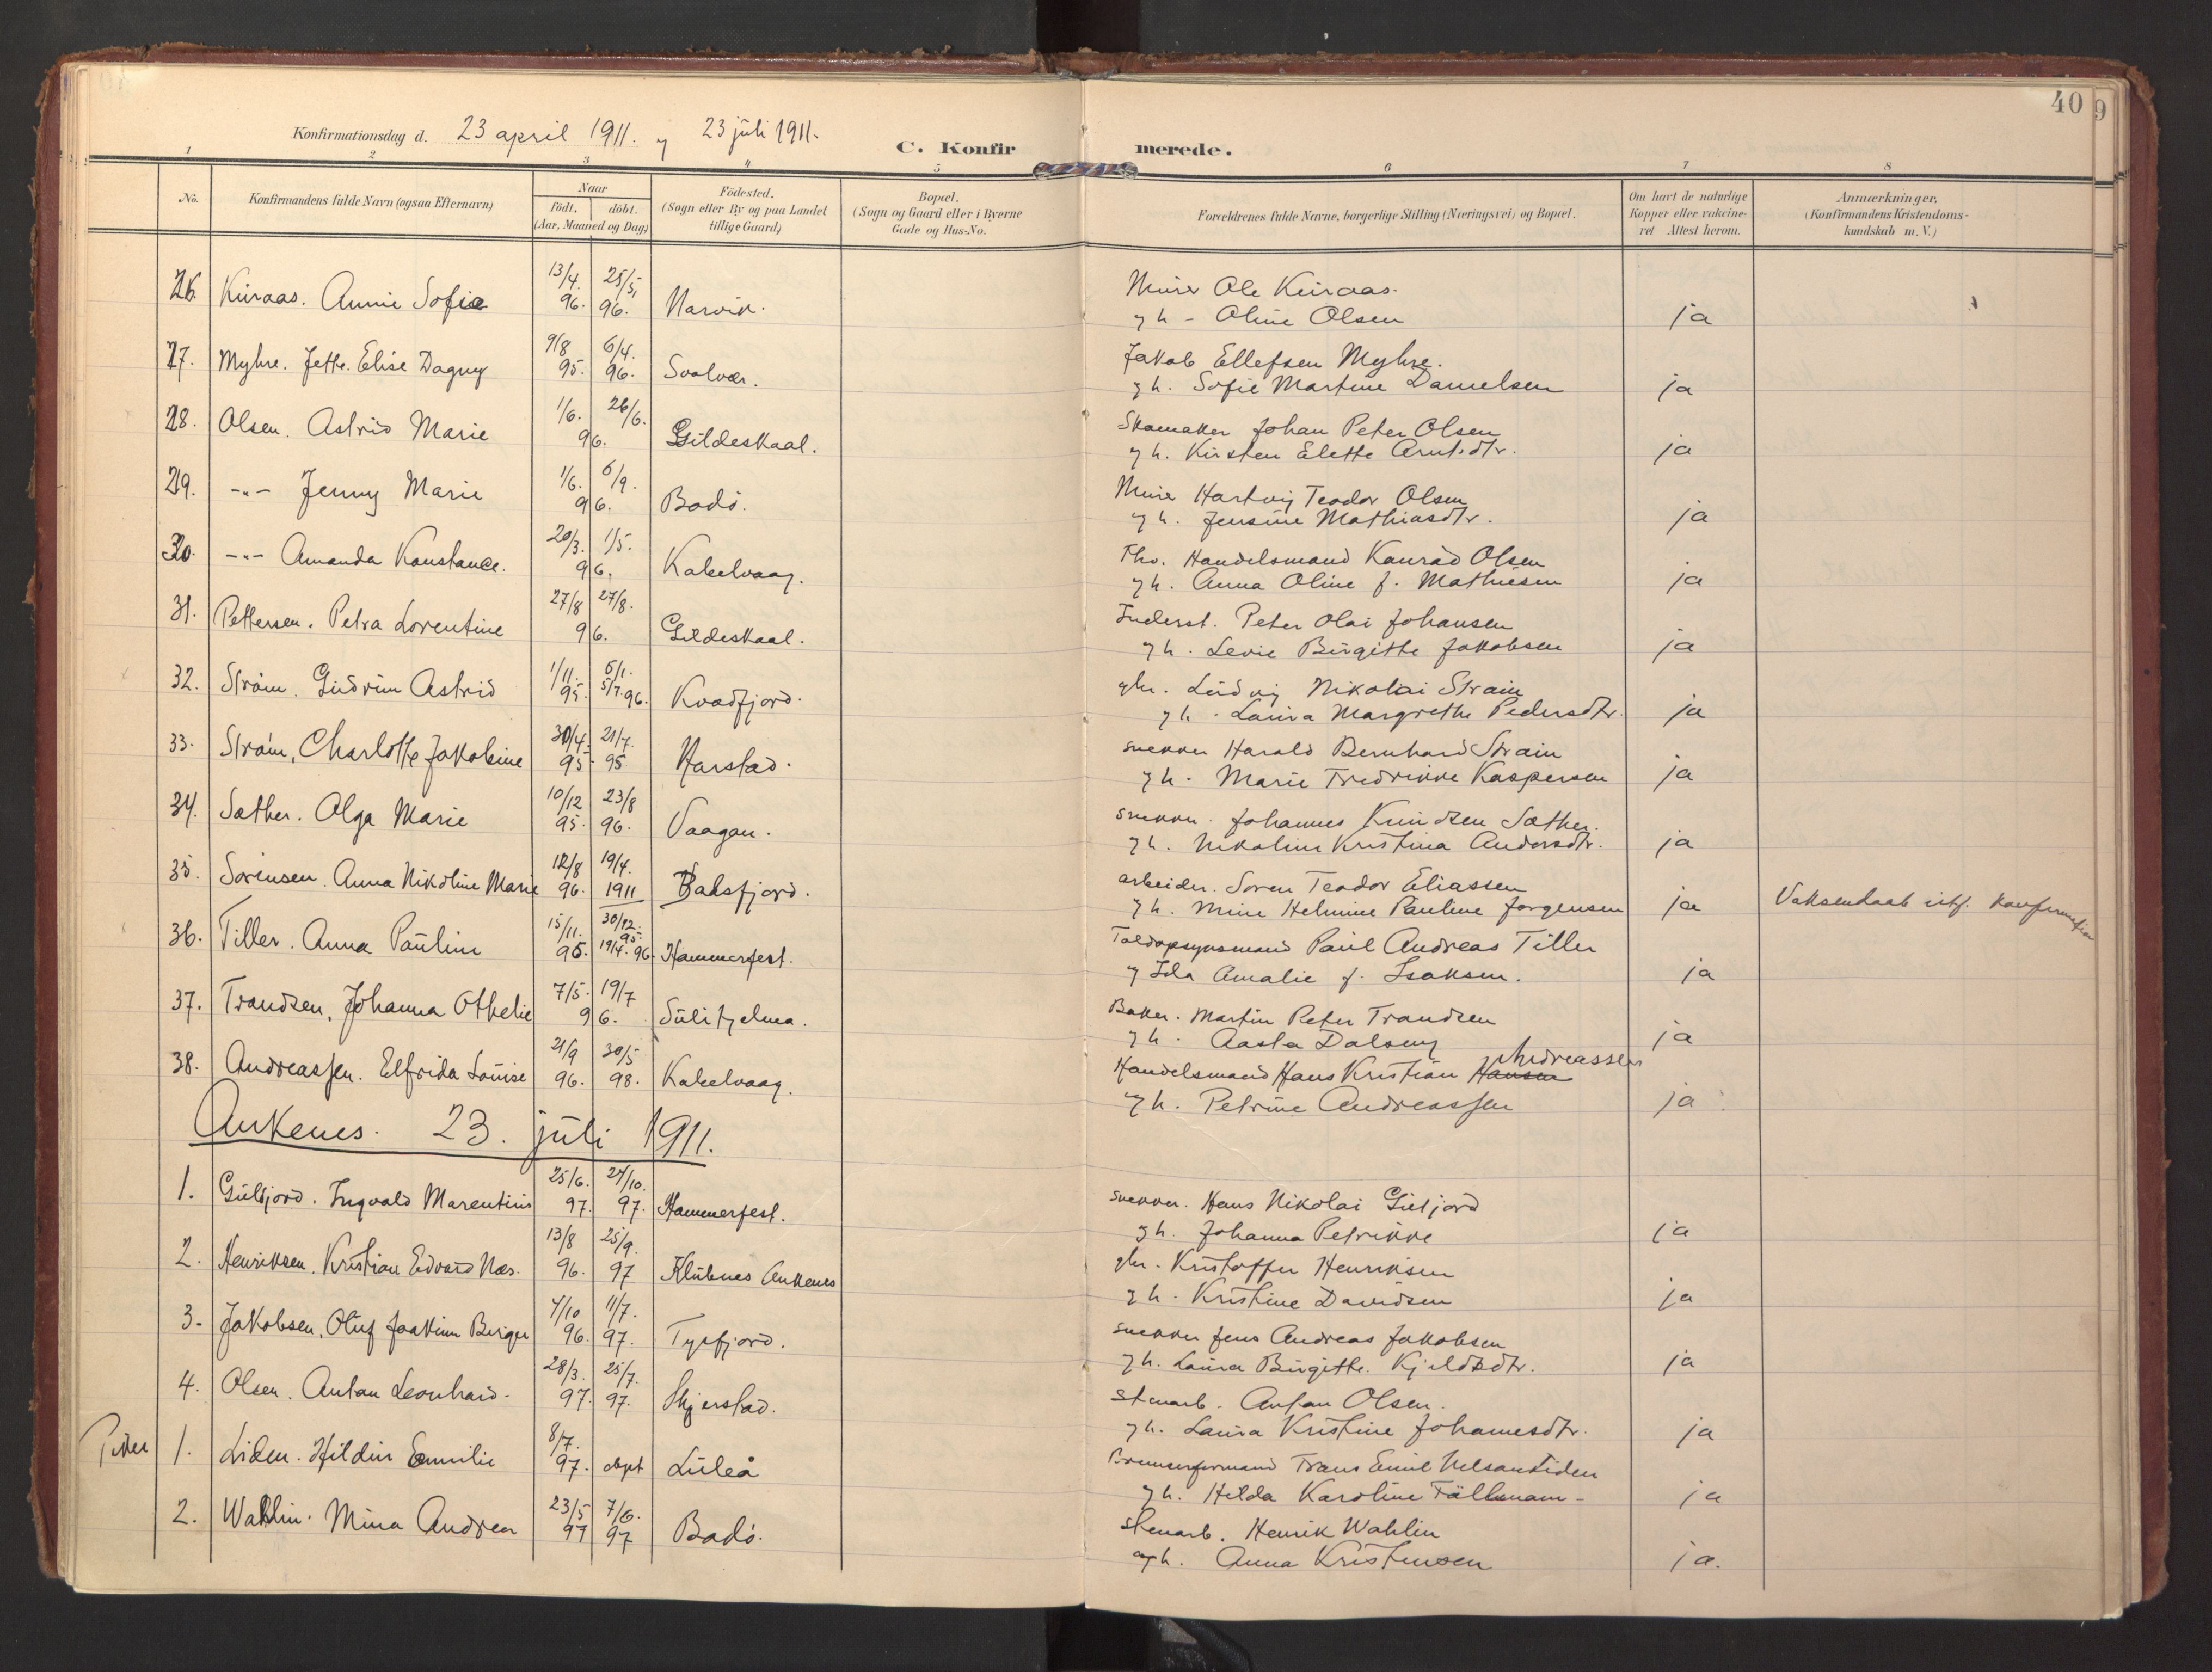 40
9
Konfirmationsdag d. 23 april 1911. 23 juli 1911.
C. Konfirmerede.
1 2 3 4 5 6 7 8
No.
Konfirmandens fulde Navn (ogsaa Efternavn)
Naar
födt. döbt.
(Aar, Maaned og Dag)
Födested.
(Sogn eller By og paa Landet
tillige Gaard)
Bopæl.
(Sogn og Gaard eller i Byerne
Gade og Hus-No.
Forældrenes fulde Navne, borgerlige Stilling (Næringsvei) og Bopæl.
Om havt de naturlige
Kopper eller vakcine-
ret Attest herom.
Anmærkninger.
(Konfirmandens Kristendoms-
kundskab m. V.)
26. Kiiraas. Annie Sofie 13/4. 96. 25/5. 96. Narvik. Murer Ole Kiiraas.
g h - Oline Olsen ja
27. Myhre. Jette. Elise Dagny 9/8 95. 6/4. 96. Svolvær. Jakob Ellefsen Myhre.
g h. Sofie Martine Danielsen ja
28. Olsen. Astrid Marie 1/6. 26/6. 96. Gildeskaal. Skomaker Johan Peter Olsen
g h. Kirsten Elette Arntsdtr. ja
29. -"- Jenny Marie 1/6. 6/9. 96. Bodö. Murer Hartvig Teodor Olsen
g h. Jensine Mathiasdtr. ja
30. -"- Amanda Konstance. 20/3. 1/5. 96. Kabelvaag. Fhv. Handelsmand Konrad Olsen
g h. Anna Oline f. Mathiesen ja
31. Pettersen. Petra Lorentine 27/8 27/8. 96. Gildeskaal. Inderst. Peter Olai Johansen
g h. Levie Birgitte Jakobsen ja
32. Ström. Gudrun Astrid 1/11. 95. 6/1. 5/7. 96. Kvædfjord. gbr. Ludvig Nikolai Ström
g h. Laura Margrethe Pedersdtr. ja
33. Ström, Charlotte Jakobine 30/4. 95. 21/7. 95 Harstad. snekker Harald Bernhard Ström
g h. Marie Fredrikke Kaspersen ja
34. Sæther. Olga Marie 10/12 95. 23/8 96. Vaagan. snekker. Johannes Knudsen Sæther.
g h. Nikoline Kristina Andersdtr. ja
35. Sörensen. Anna Nikoline Marie 12/8 96. 19/4. 1911 Balsfjord. arbeider. Sören Teodor Eliassen
g h. Mine Helmine Pauline Jörgensen ja Voksendaab utf. konfirmation
36. Tiller. Anna Pauline 15/11. 95. 30/12. 95. 19/4. 96. Hammerfest. Toldopsynsmand Paul Andreas Tiller
g Ida Amalie f. Isaksen. ja
37. Trondsen, Johanna Othelie 7/5. 19/7 96. Sulitjelma. Baker. Martin Peter Trondsen
g h. Aasta Dalseng ja
38. Andreassen. Elfrida Louise 21/9 96. 30/5 98. Kabelvaag. Handelsmand Hans Kristian Hansen Andreassen
g h. Petrine Andreassen ja
Ankenes. 23. juli 1911.
1. Gulljord. Ingvald Marentius 25/6. 97. 24/10. 97. Hammerfest. snekker. Hans Nikolai Gulljord
g h. Johanna Petrikke ja
2. Henriksen. Kristian Edvard Næs. 13/8 96. 25/9. 97 Klubnes Ankenes gbr. Kristoffer Henriksen
g h. Kristine Davidsen ja
3. Jakobsen, Oluf Joakim Birger 4/10 96. 11/7. 97. Tysfjord. snekker Jens Andreas Jakobsen
g h. Laura Birgitte. Kjeldsdtr. ja
4. Olsen. Anton Leonhard. 28/3. 97. 25/7. 97. Skjerstad. stenarb. Anton Olsen.
g h. Laura Kristine Johannesdtr. ja
Piker 1. Liden. Hildur Emilie 8/7. 97. döpt Luleå Bremserformand Frans Emil Nelson Liden
g h. Hilda Karoline Fällmann - ja
2. Wahlin. Mina Andrea 23/5 97 7/6. 97 Bodö. stenarb. Henrik Wahlin
g h. Anna Kristensen ja.